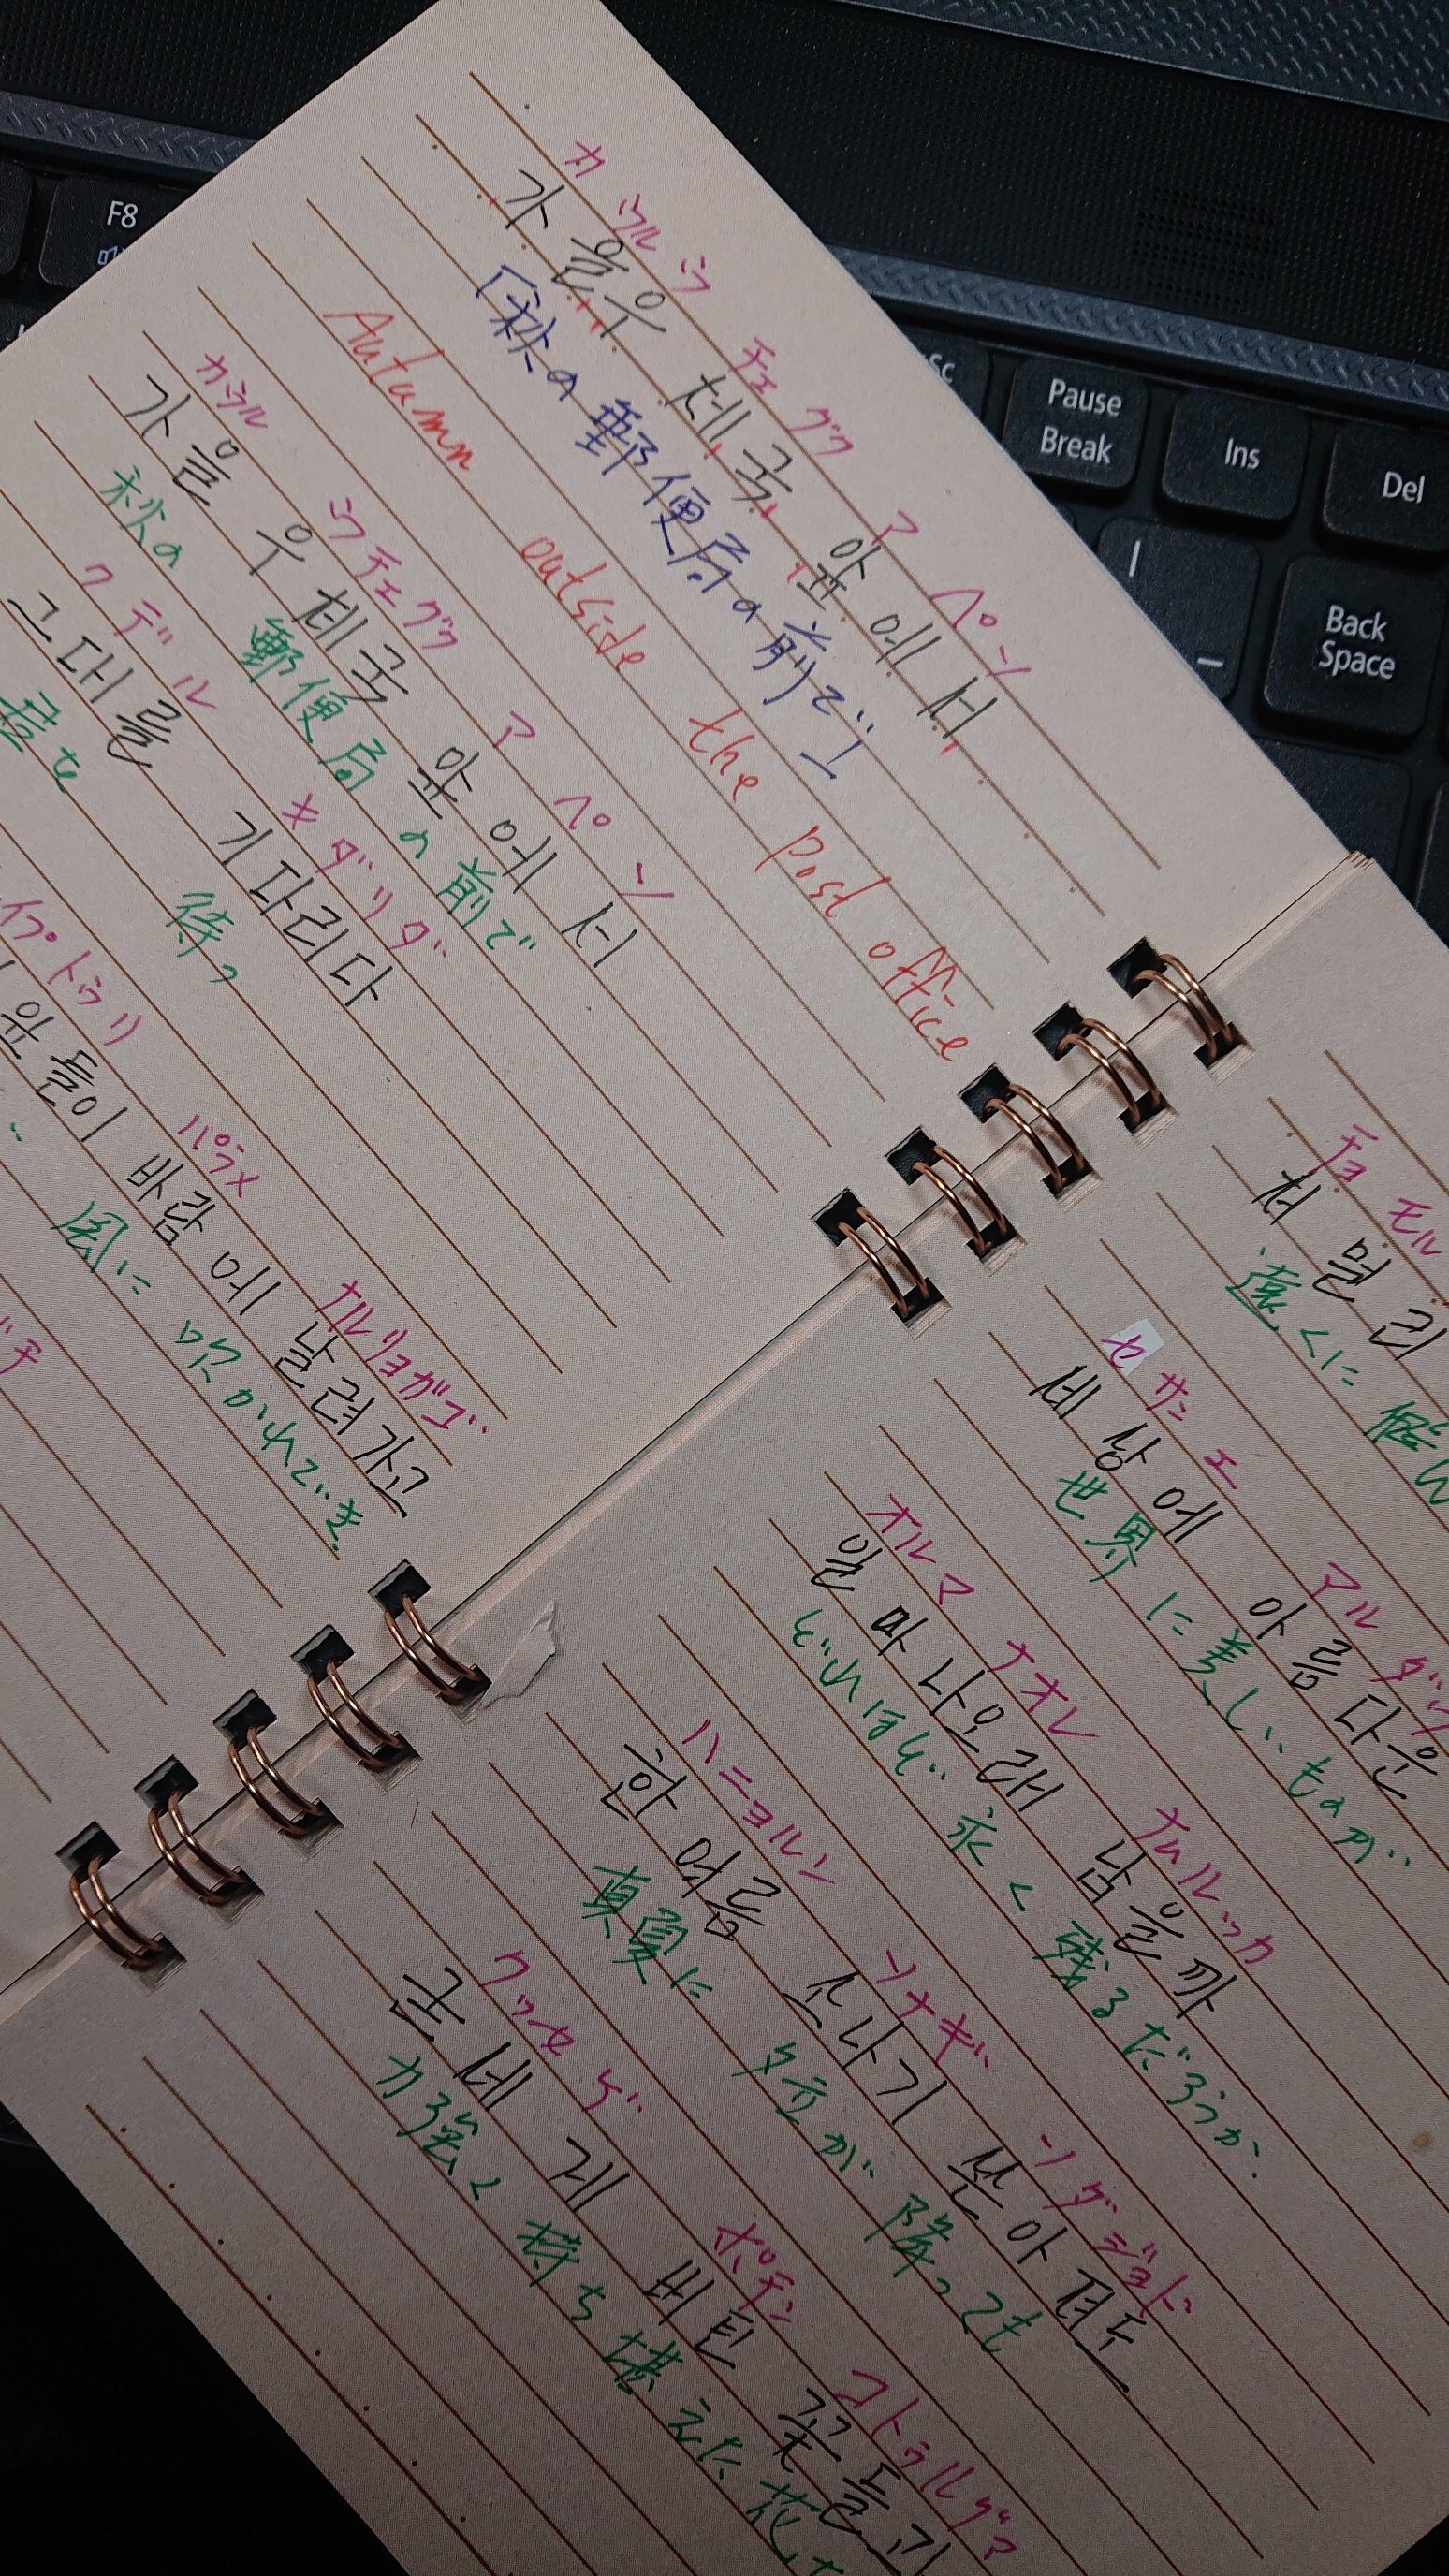 カウルウ チェググ アペソ
가을우 체국 앞에서
「秋の郵便局の前で」
Autumn outside the post office
カウル ウチェググ アペソ
가을 우체국 앞에서
秋の 郵便局の前で
クデル キダリダ
그대를 기다리다
君を 待つ
イプトゥリ パラメ ナルリョガゴ
들이 바람에 날려가고
風に 吹かれてゆき
チョモル
저 멀리
遠くに
セサンエ アル
세상에 아름다운
世界に美しいものが
オルマ ナオレ ナムルッカ
얼마나오래 남을까
どれほど 永く残るだろうか
ハニョルン ソナギ ソダジョド
한여름 소나기 쏟아져도
真夏に 夕立が降っても
クッセゲ ポティン コトゥルグァ
굳세게 버틴 꽃들과
力強く 持ち堪えた花
F8
Pause Break
Ins
Del
Back Space